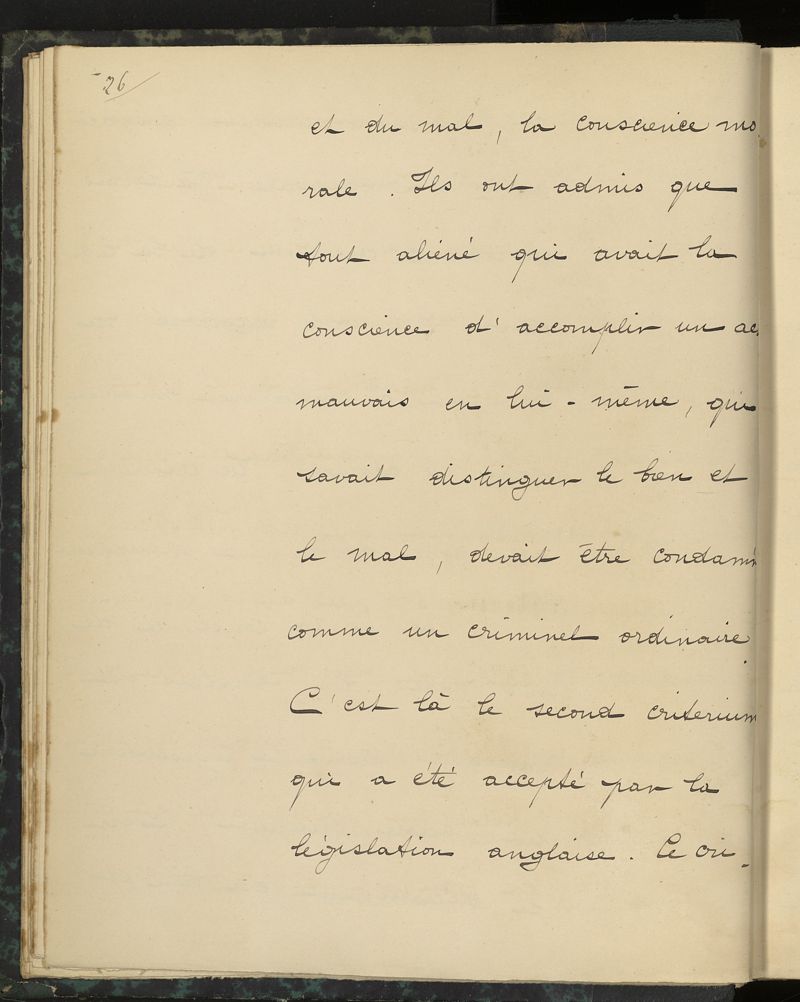 26
et du mal, la conscience mo
rale. Ils ont admis que
tout aliéné qui avait la
conscience d'accomplir un ac
mauvais en lui-même, qui
savait distinguer le bien et
le mal, devait être condamn
comme un criminel ordinaire.
C'est là le second criterium
qui a été accepté par la
législation anglaise. Ce cri-